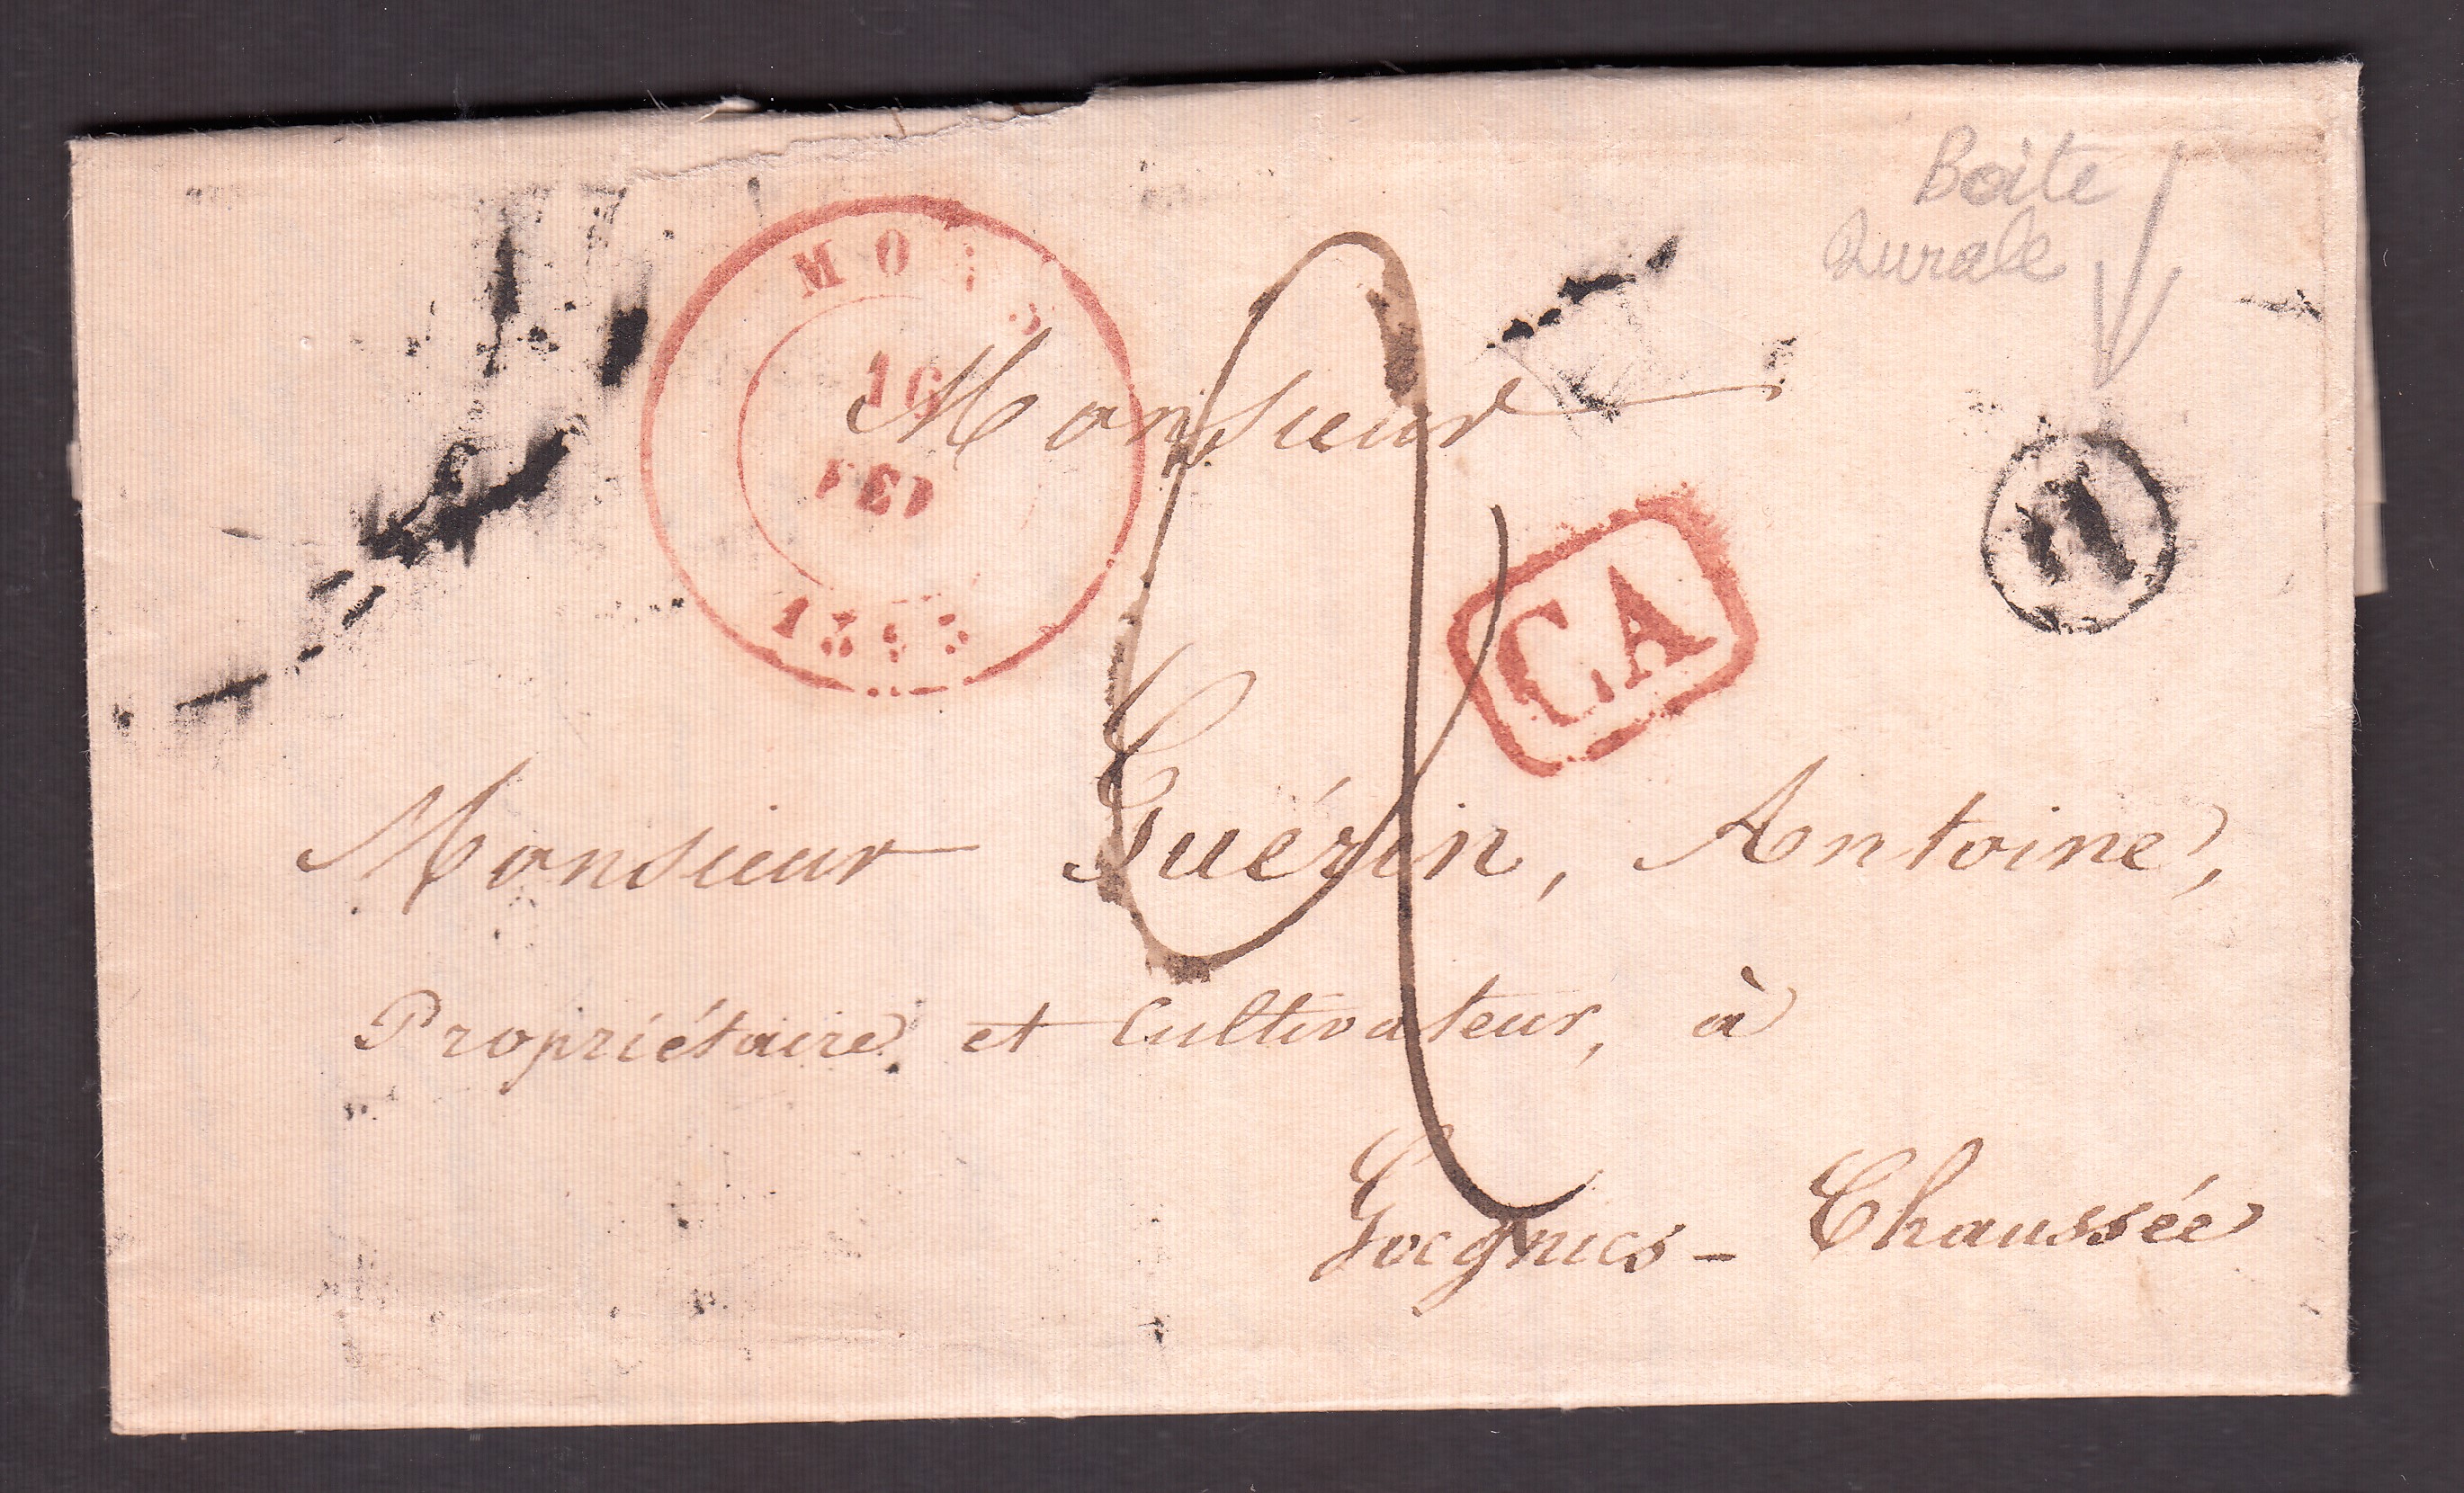 Boite
Rurale
16
Monsieur
CA
Monsieur Guérin, Antoine,
Propriétaire et Cultivateur, à
Gœgnies - Chaussée